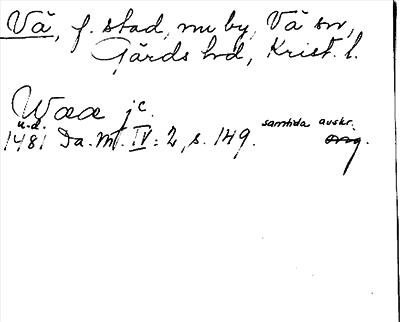 Vä, f. stad, nu by, Vä sn,
Gärds hd, Krist. l.
Waa jc.
u.d. samtida avskr.
1481 Da. M. IV: 2, s. 149. orig.